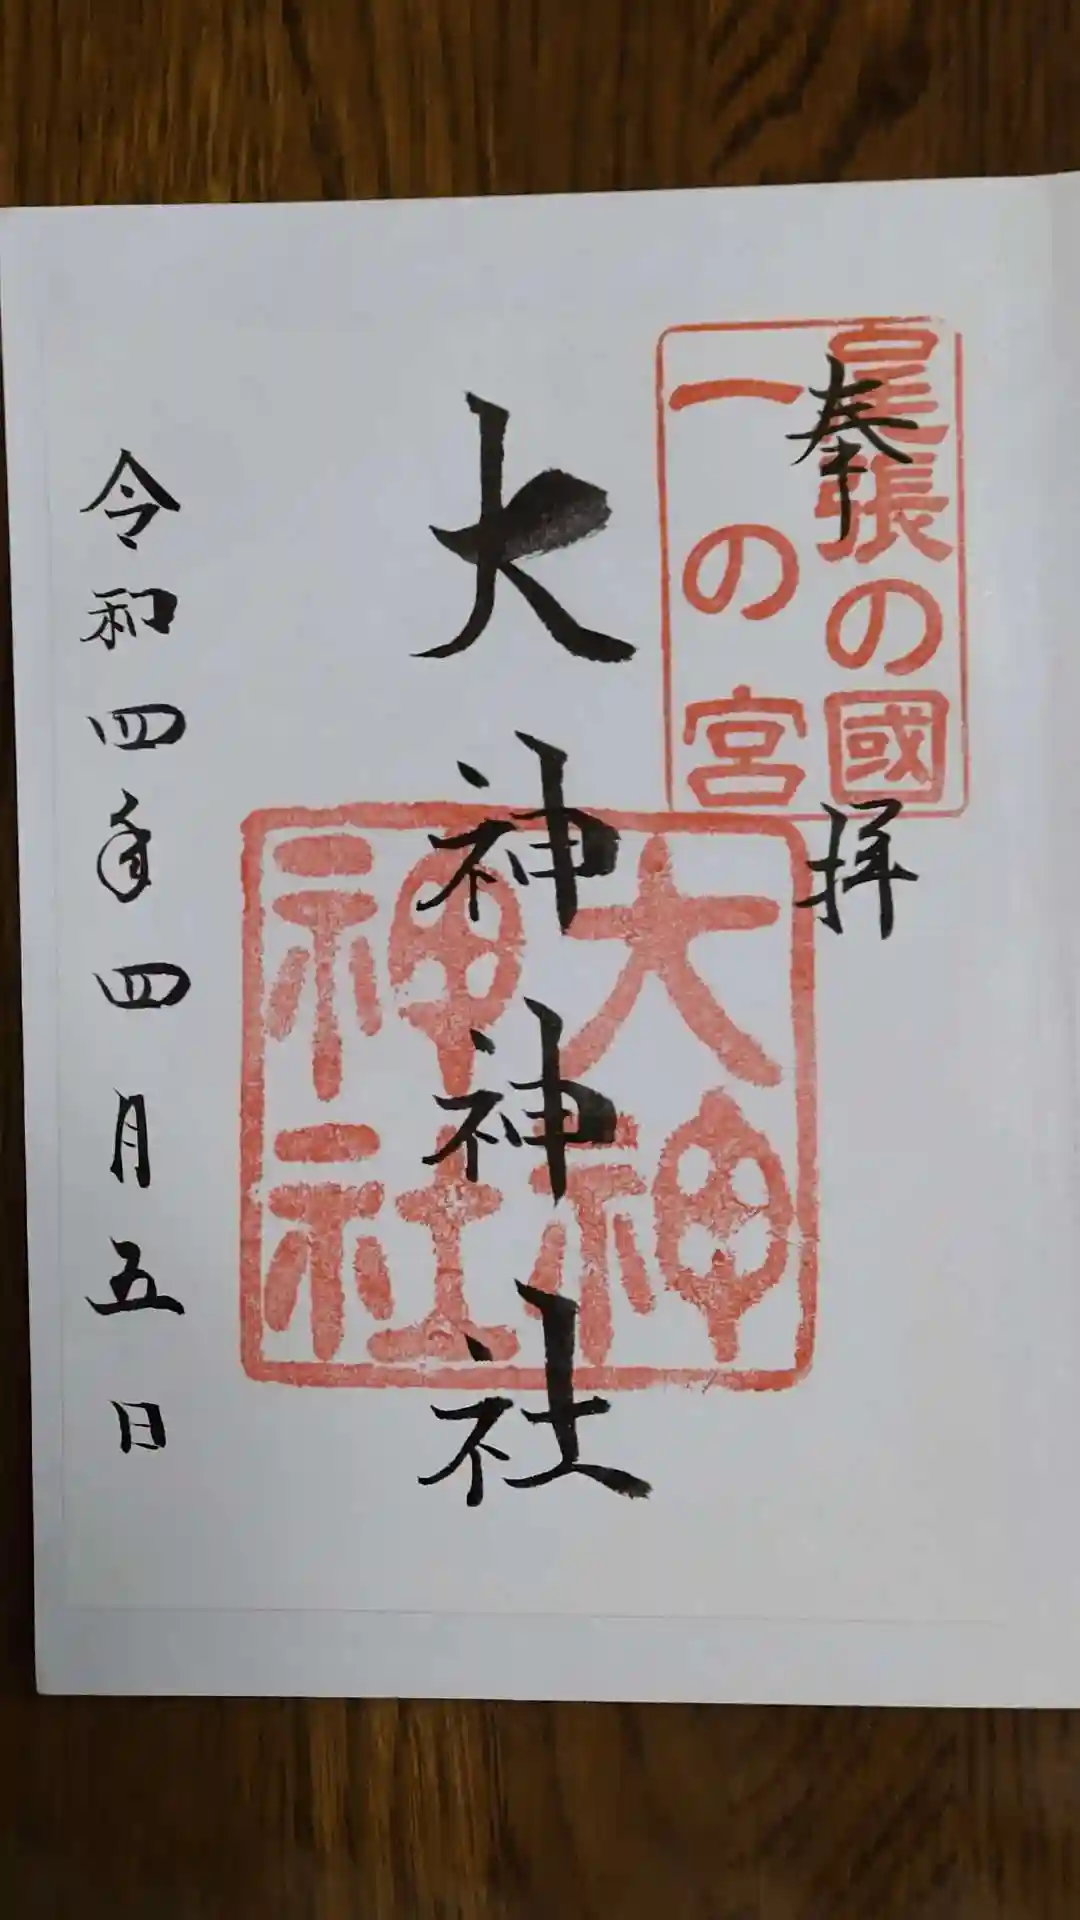 奉拝
尾張の國
一の宮
大神神社
大神
神社
令和四年四月五日